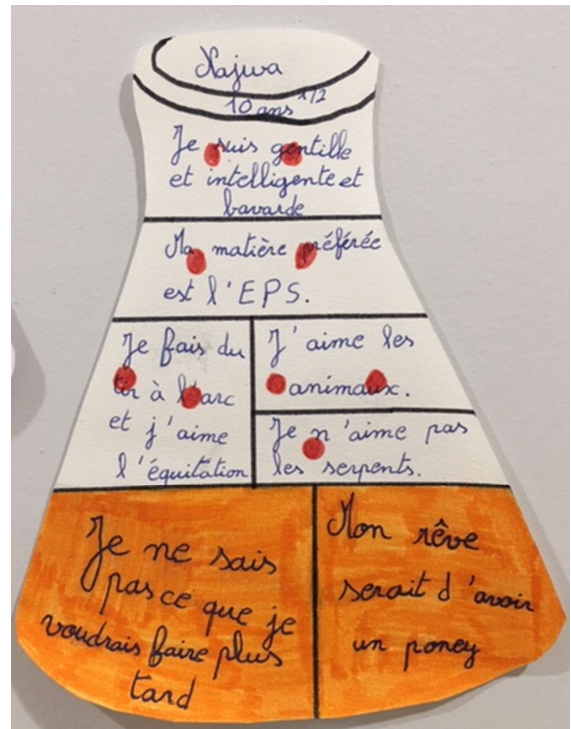 Najwa
10 ans 1/2
Je suis gentille
et intelligente et
bavarde
Ma matière préférée
est l'EPS.
Je fais du
tir à l'arc
et j'aime
l'équitation
J'aime les
animaux.
Je n'aime pas
les serpents.
Je ne sais
pas ce que je
voudrais faire plus
tard
Mon rêve
serait d'avoir
un poney